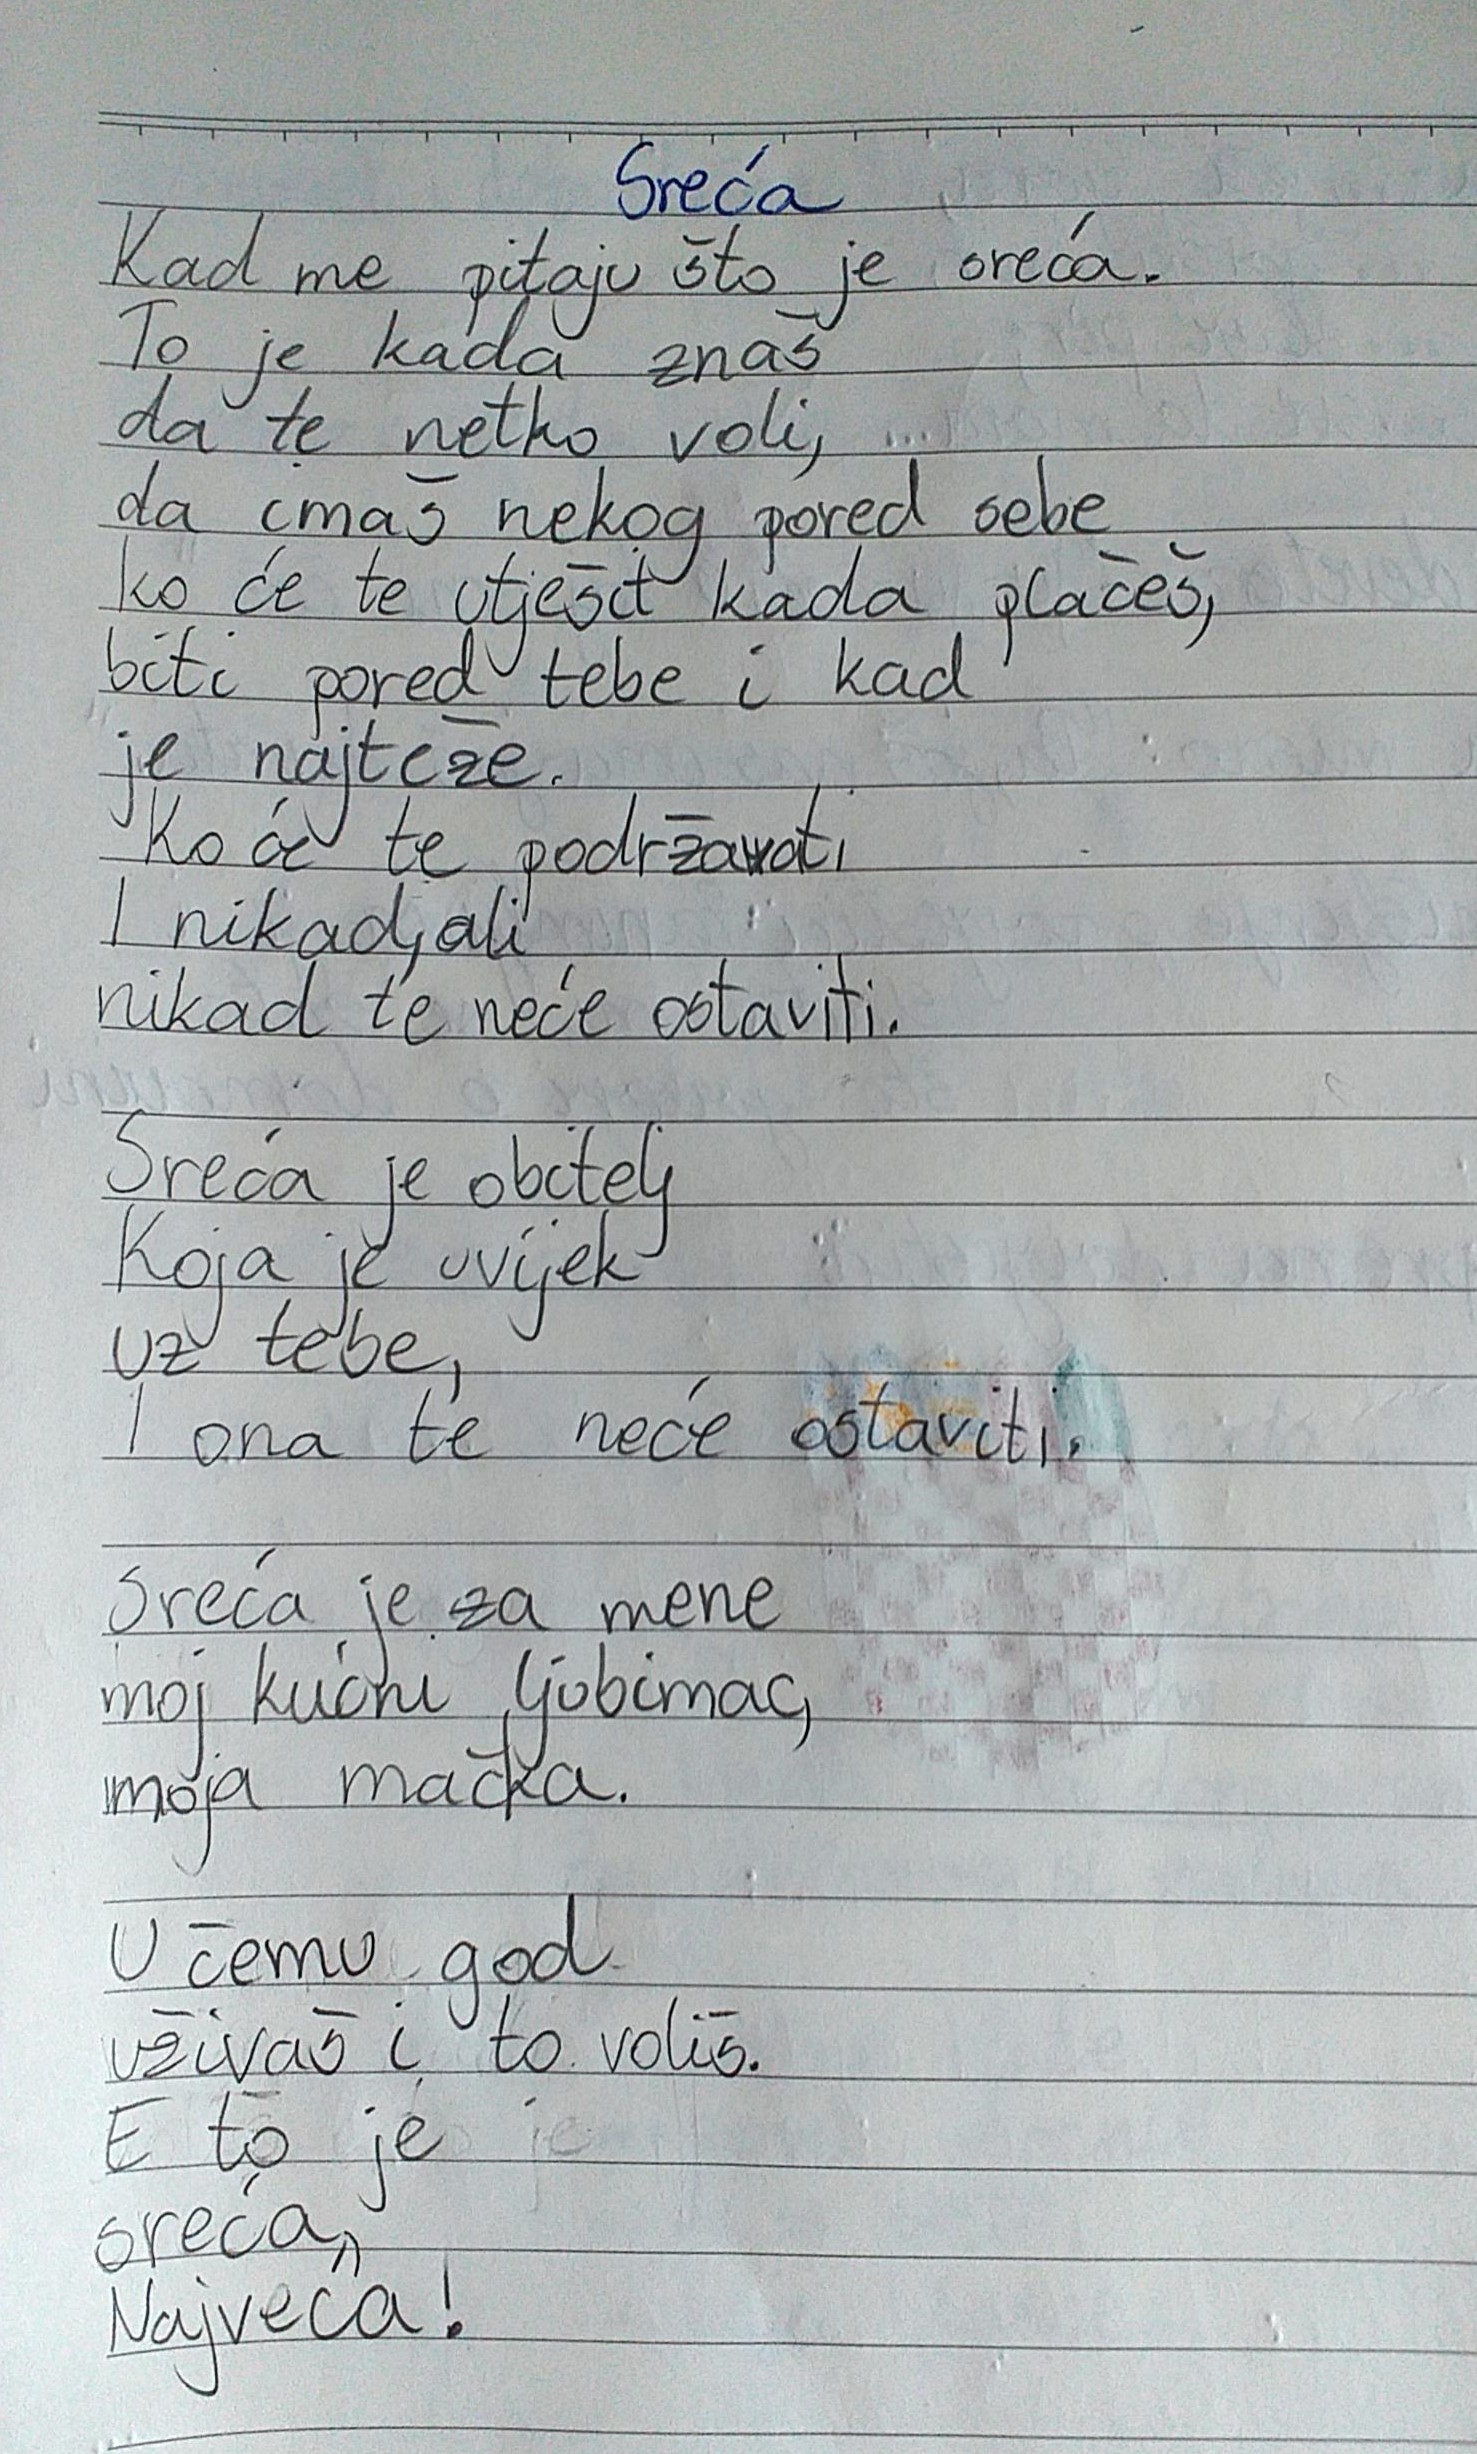 Sreća
Kad me pitaju što je sreća.
To je kada znaš
da te netko voli,
da imaš nekog pored sebe
ko će te utješit kada plačeš,
biti pored tebe i kad
je najteže.
Ko će te podržavati
I nikad, ali
nikad te neće ostaviti.
Sreća je obitelj
Koja je uvijek
uz tebe,
I ona te neće ostaviti.
Sreća je za mene
moj kućni ljubimac,
moja mačka.
U čemu god
uživaš i to voliš.
E to je
sreća,
Najveća!